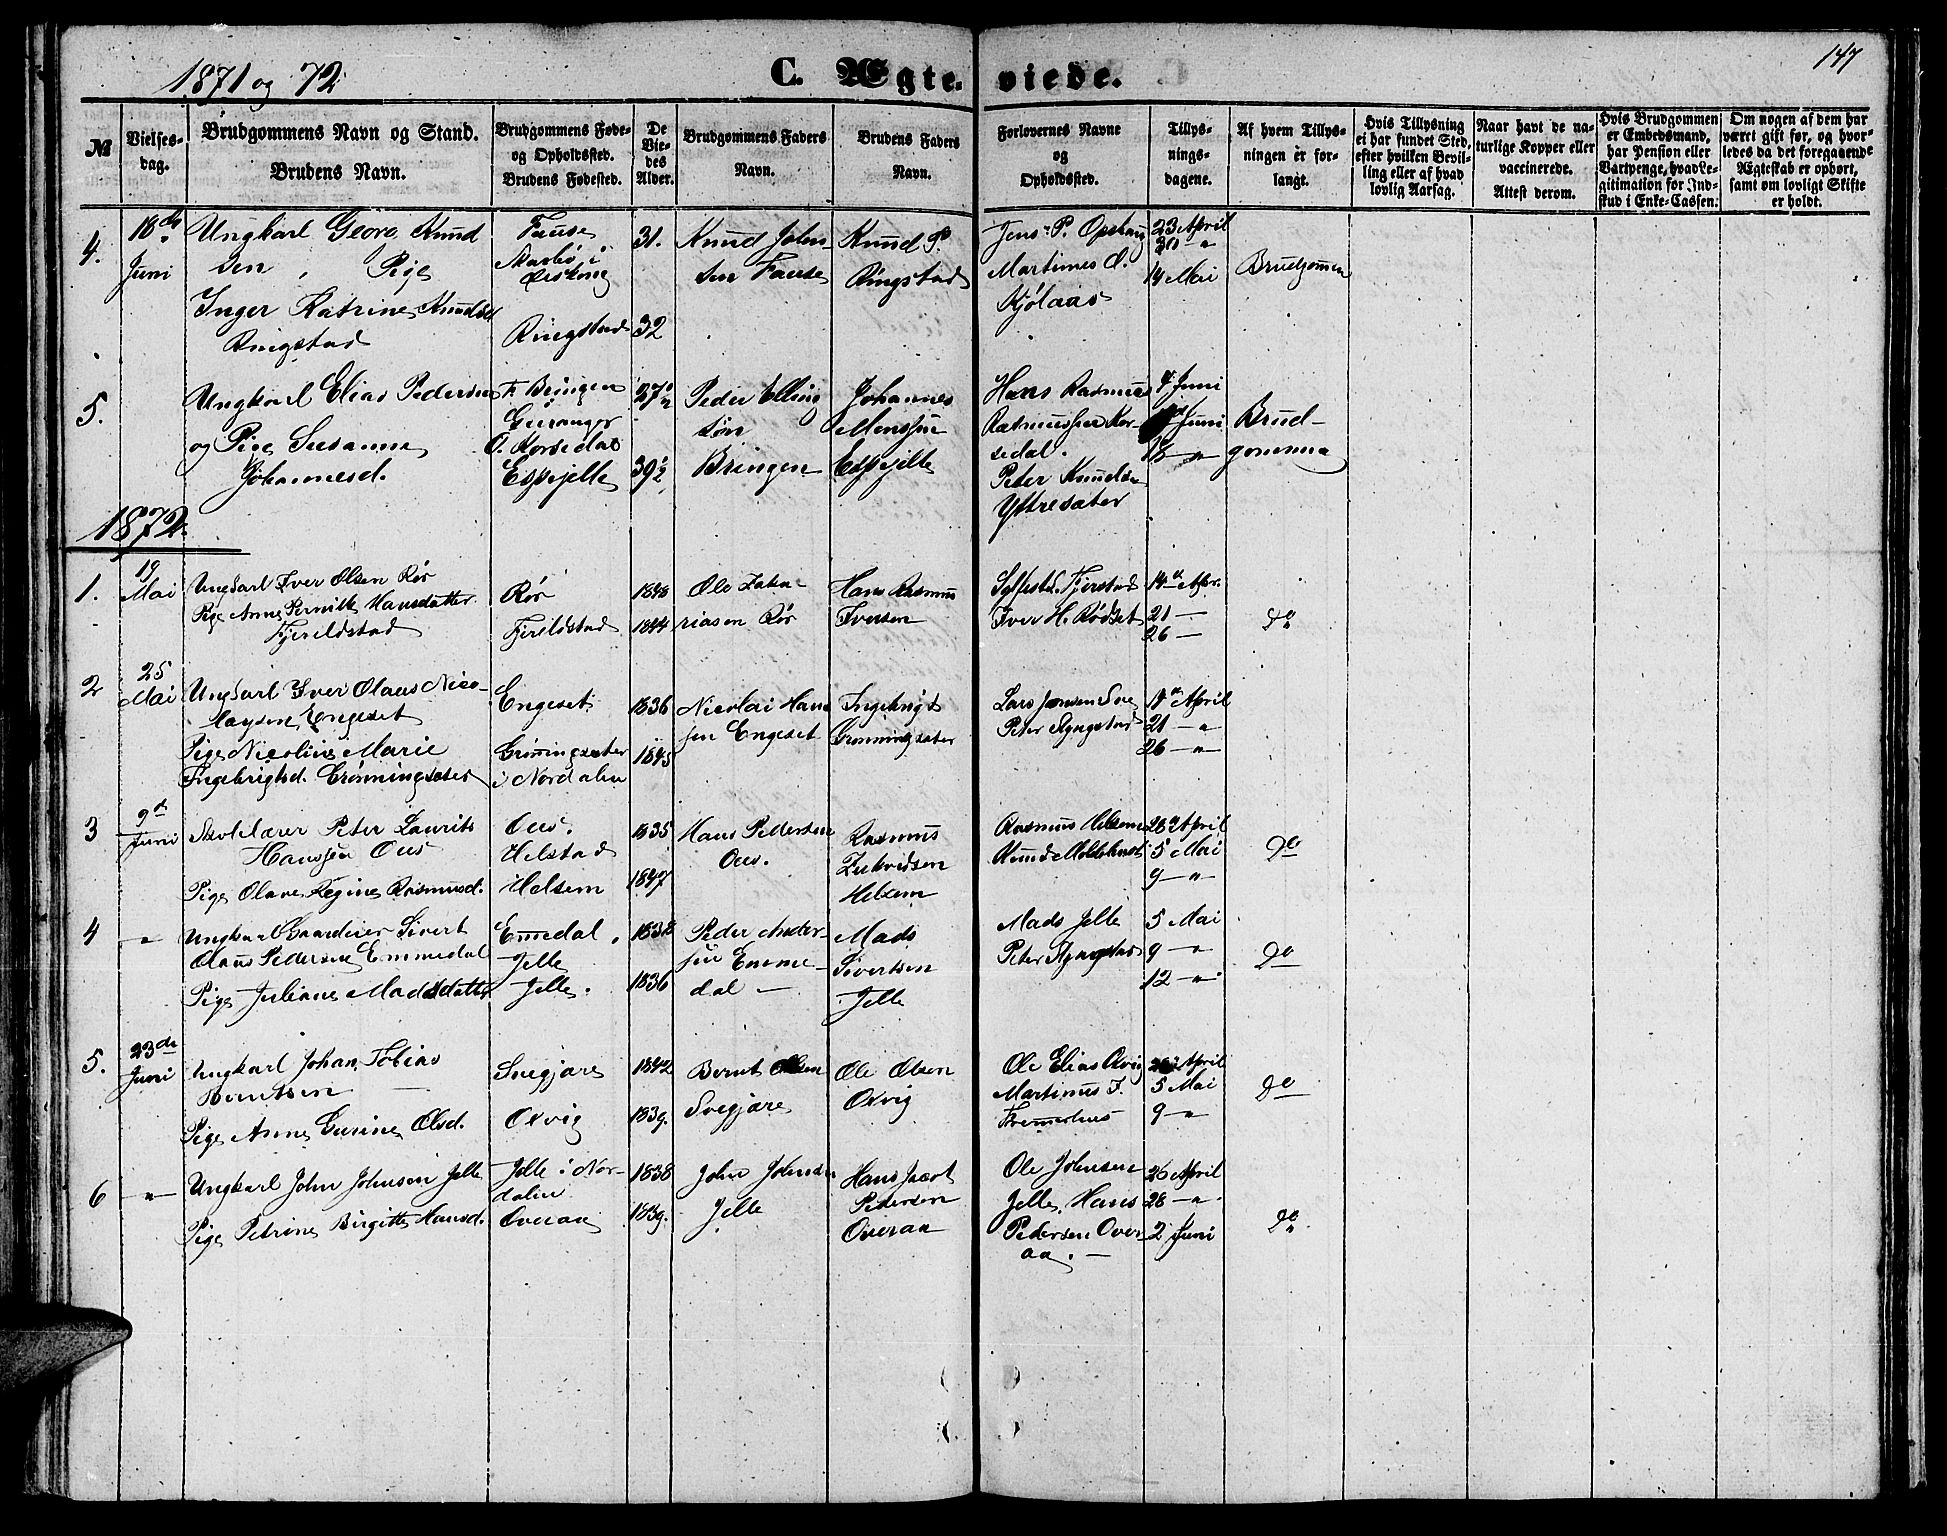 147
1871 og 72
C. Ægteviede.
№
Vielses-
dag.
Brudgommens Navn og Stand.
Brudens Navn.
Brudgommens Føde-
og Opholdssted.
Brudens Fødested.
De
Vie-
des
Alder.
Brudgommens Faders
Navn.
Brudens Faders
Navn.
Forlovernes Navne
og
Opholdssted.
Tillys-
nings-
dagene.
Af hvem Tillys-
ningen er for-
langt.
Hvis Tillysning
ei har fundet Sted,
efter hvilken Bevil-
ling eller af hvad
lovlig Aarsag.
Naar havt de na-
turlige Kopper eller
vaccinerede.
Attest derom.
Hvis Brudgommen
er Embedsmand,
har Pension eller
Vartpenge, hvad Le-
gitimation for Ind-
skud i Enke-Cassen.
Om nogen af dem har
været gift før, og hvor-
ledes da det foregaaende
Ægteskab er ophørt,
samt om lovligt Skifte
er holdt.
4.
18de
Juni
Ungkarl Georg Knud
sen, Pige
Inger Katrine Knudsd
Ringstad
Fause
Ringstad
31.
32
Knud John
sen Fause
Knud P.
Ringstad
Jens P. Opshaug
Martines O.
Kjølaas
23 April
30 "
14 Mai
Brudgommen
5.
Ungkarl Elias Pedersen
og Pige Susanne
Johannesd.
F. Bringen
Geiranger
O. Korsedal
Espejelle
27½
39½
Peder Elling
søn
Bringen
Johannes
Monssen
Espejelle
Hans Rasmus
Rasmussen Kor-
sedal.
Peter Knudsen
Ytresæter
4 Juni
Juni
18 "
Brud-
gommen
1872.
1.
19
Mai
Ungkarl Iver Olsen Rør
Pige Anne Pernille Hansdatter
Fjeildstad
Rør
Fjeildstad
1848
1844
Ole Zaka-
riasen Rør
Hans Rasmus
Iversen
Fjerstad
Iver H. Rødset
14de Apr.
21 —
26 —
do
2
25
Mai
Ungkarl Iver Olaus Nico-
laysen Engeset
Pige Nicoline Marie
Ingebrigtsd. Grønningsæter
Engeset
Grønningsæter
i Nordalen
1836
1845
Nicolai Han
sen Engeset
Ingebrigt
Grønningsæter
Lars Jensen Sve
Peter Ryngstad
14de April
21 — "
26 — "
3
9de
Juni
Skolelærer Peter Laurits
Hanssen Ous
Pige Olave Regine Rasmusd.
Ous.
Helstad
Helsem
1835
1847
Hans Pedersen
Ous.
Rasmus
Helsem
Rasmus Helsem
28de April
5 Mai
9 — "
do
4
"
Ungkarl Gaardeier Sivert
Olaus Pedersen Emmedal
Pige Juliane Madsdatter
Emedal.
Jelle
Jelle.
1838
1836
Peder Ander-
sen Emme-
dal —
Mads
Sivertsen
Jelle
Mads Jelle
Peter Ryngstad
5 Mai
9 — "
12 — "
do
5.
23de
Juni
Ungkarl Johan Tobias
Berntsen —
Pige Anne Gurine Olsd.
Svegjare
Oxvig
1842
1839.
Bernt Olsen
Svegjare
Ole Olsen
Oxvig
Ole Elias Oxvig
Martinus I.
April
5 Mai
9 — "
do
6
"
Ungkarl John Johnsen Jelle
Pige Petrine Birgitte Hansd.
Jelle i Nor-
dalen
Overaa
1838
1839.
John Johnsen
Jelle
Hans Jacob
Petersen
Overaa
Ole Johnsen
Jelle, Hans
Pedersen Over-
aa. —
26 April
28 — "
2 Juni
do